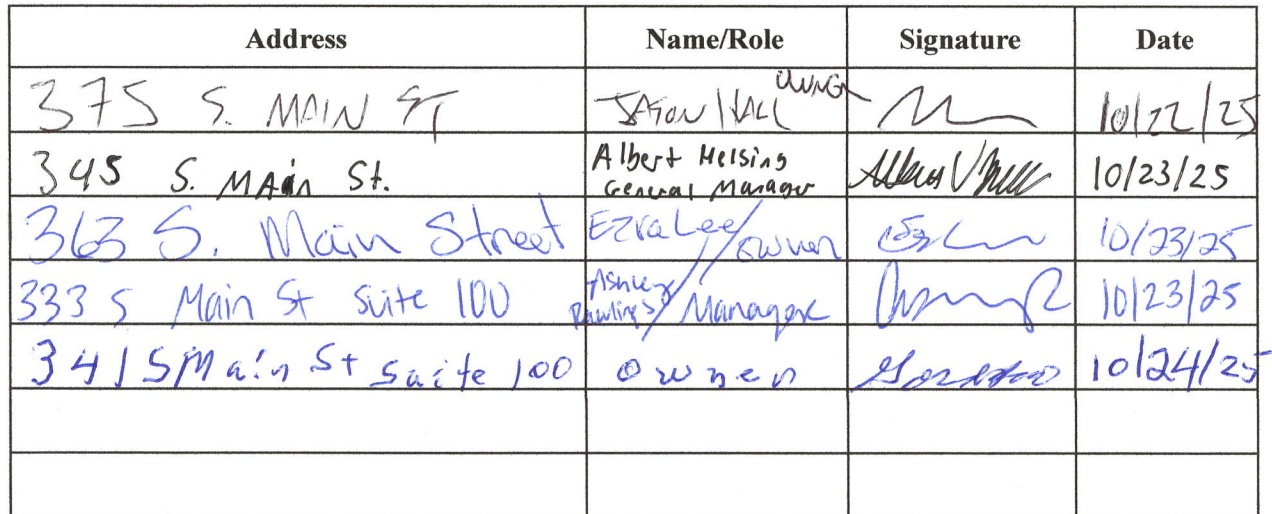 Address Name/Role Signature Date
375 S. MAIN ST JASON HALL OWNER 10/22/25
345 S. MAin St. Albert Helsing General Manager 10/23/25
363 S. Main Street Ezra Lee/owner 10/23/25
333 S Main St Suite 100 Ashley Rawlings/Manager 10/23/25
341 S Main St Suite 100 owner 10/24/25